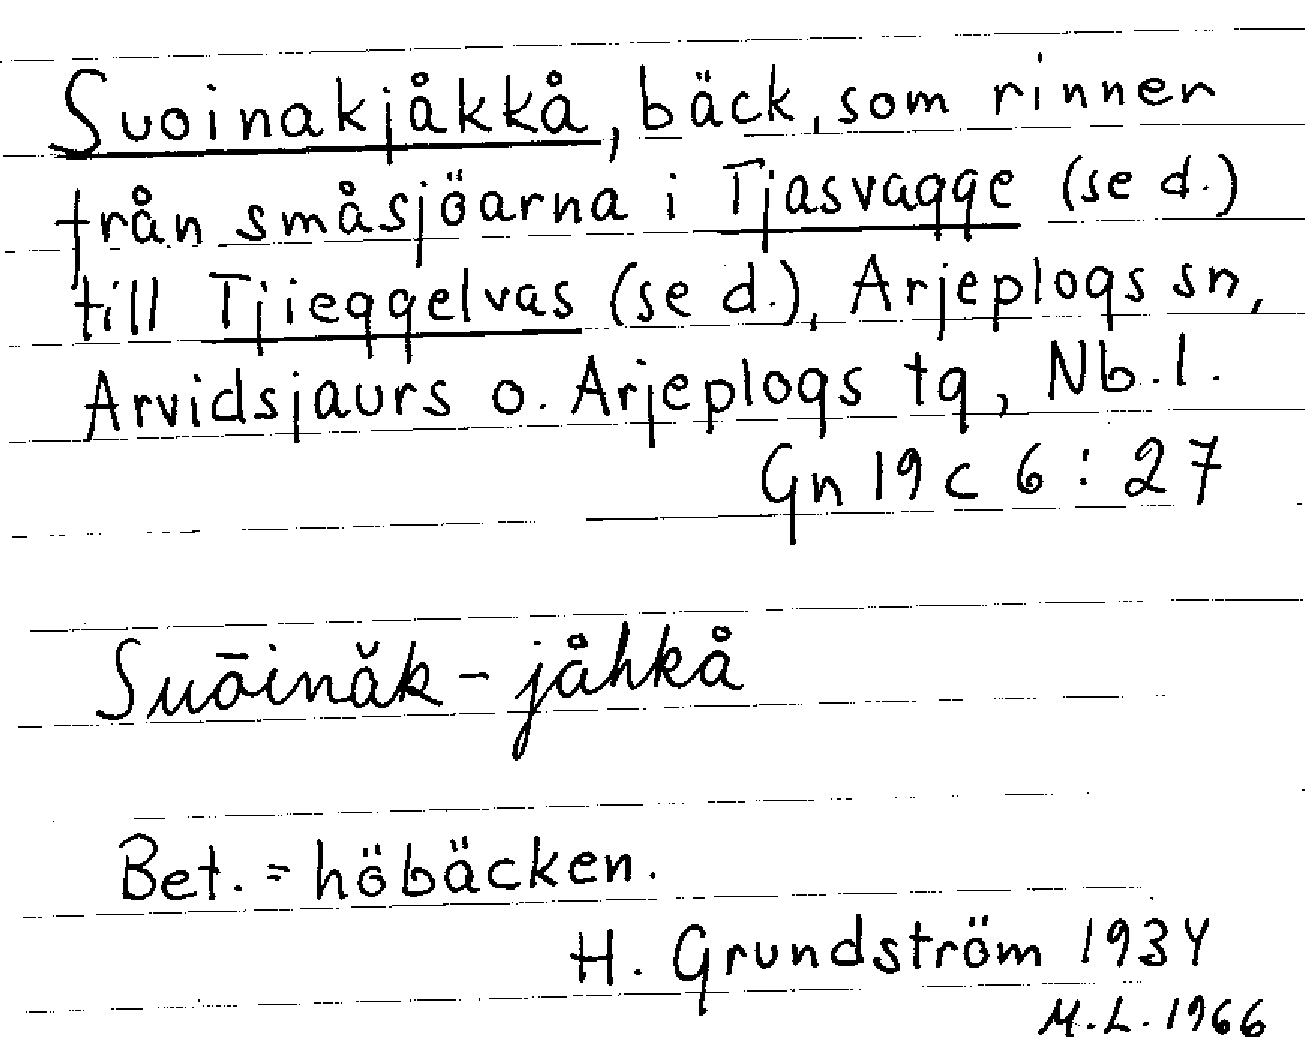 Suoinakjåkkå, bäck, som rinner
från småsjöarna i Tjasvagge (se d.)
till Tjieggelvas (se d.), Arjeplogs sn,
Arvidsjaurs o. Arjeplogs tg, Nb. l.
Gn 19 c 6 : 27
Suōināk̆ - jåhkå
Bet. = höbäcken.
H. Grundström 1934
M. L. 1966